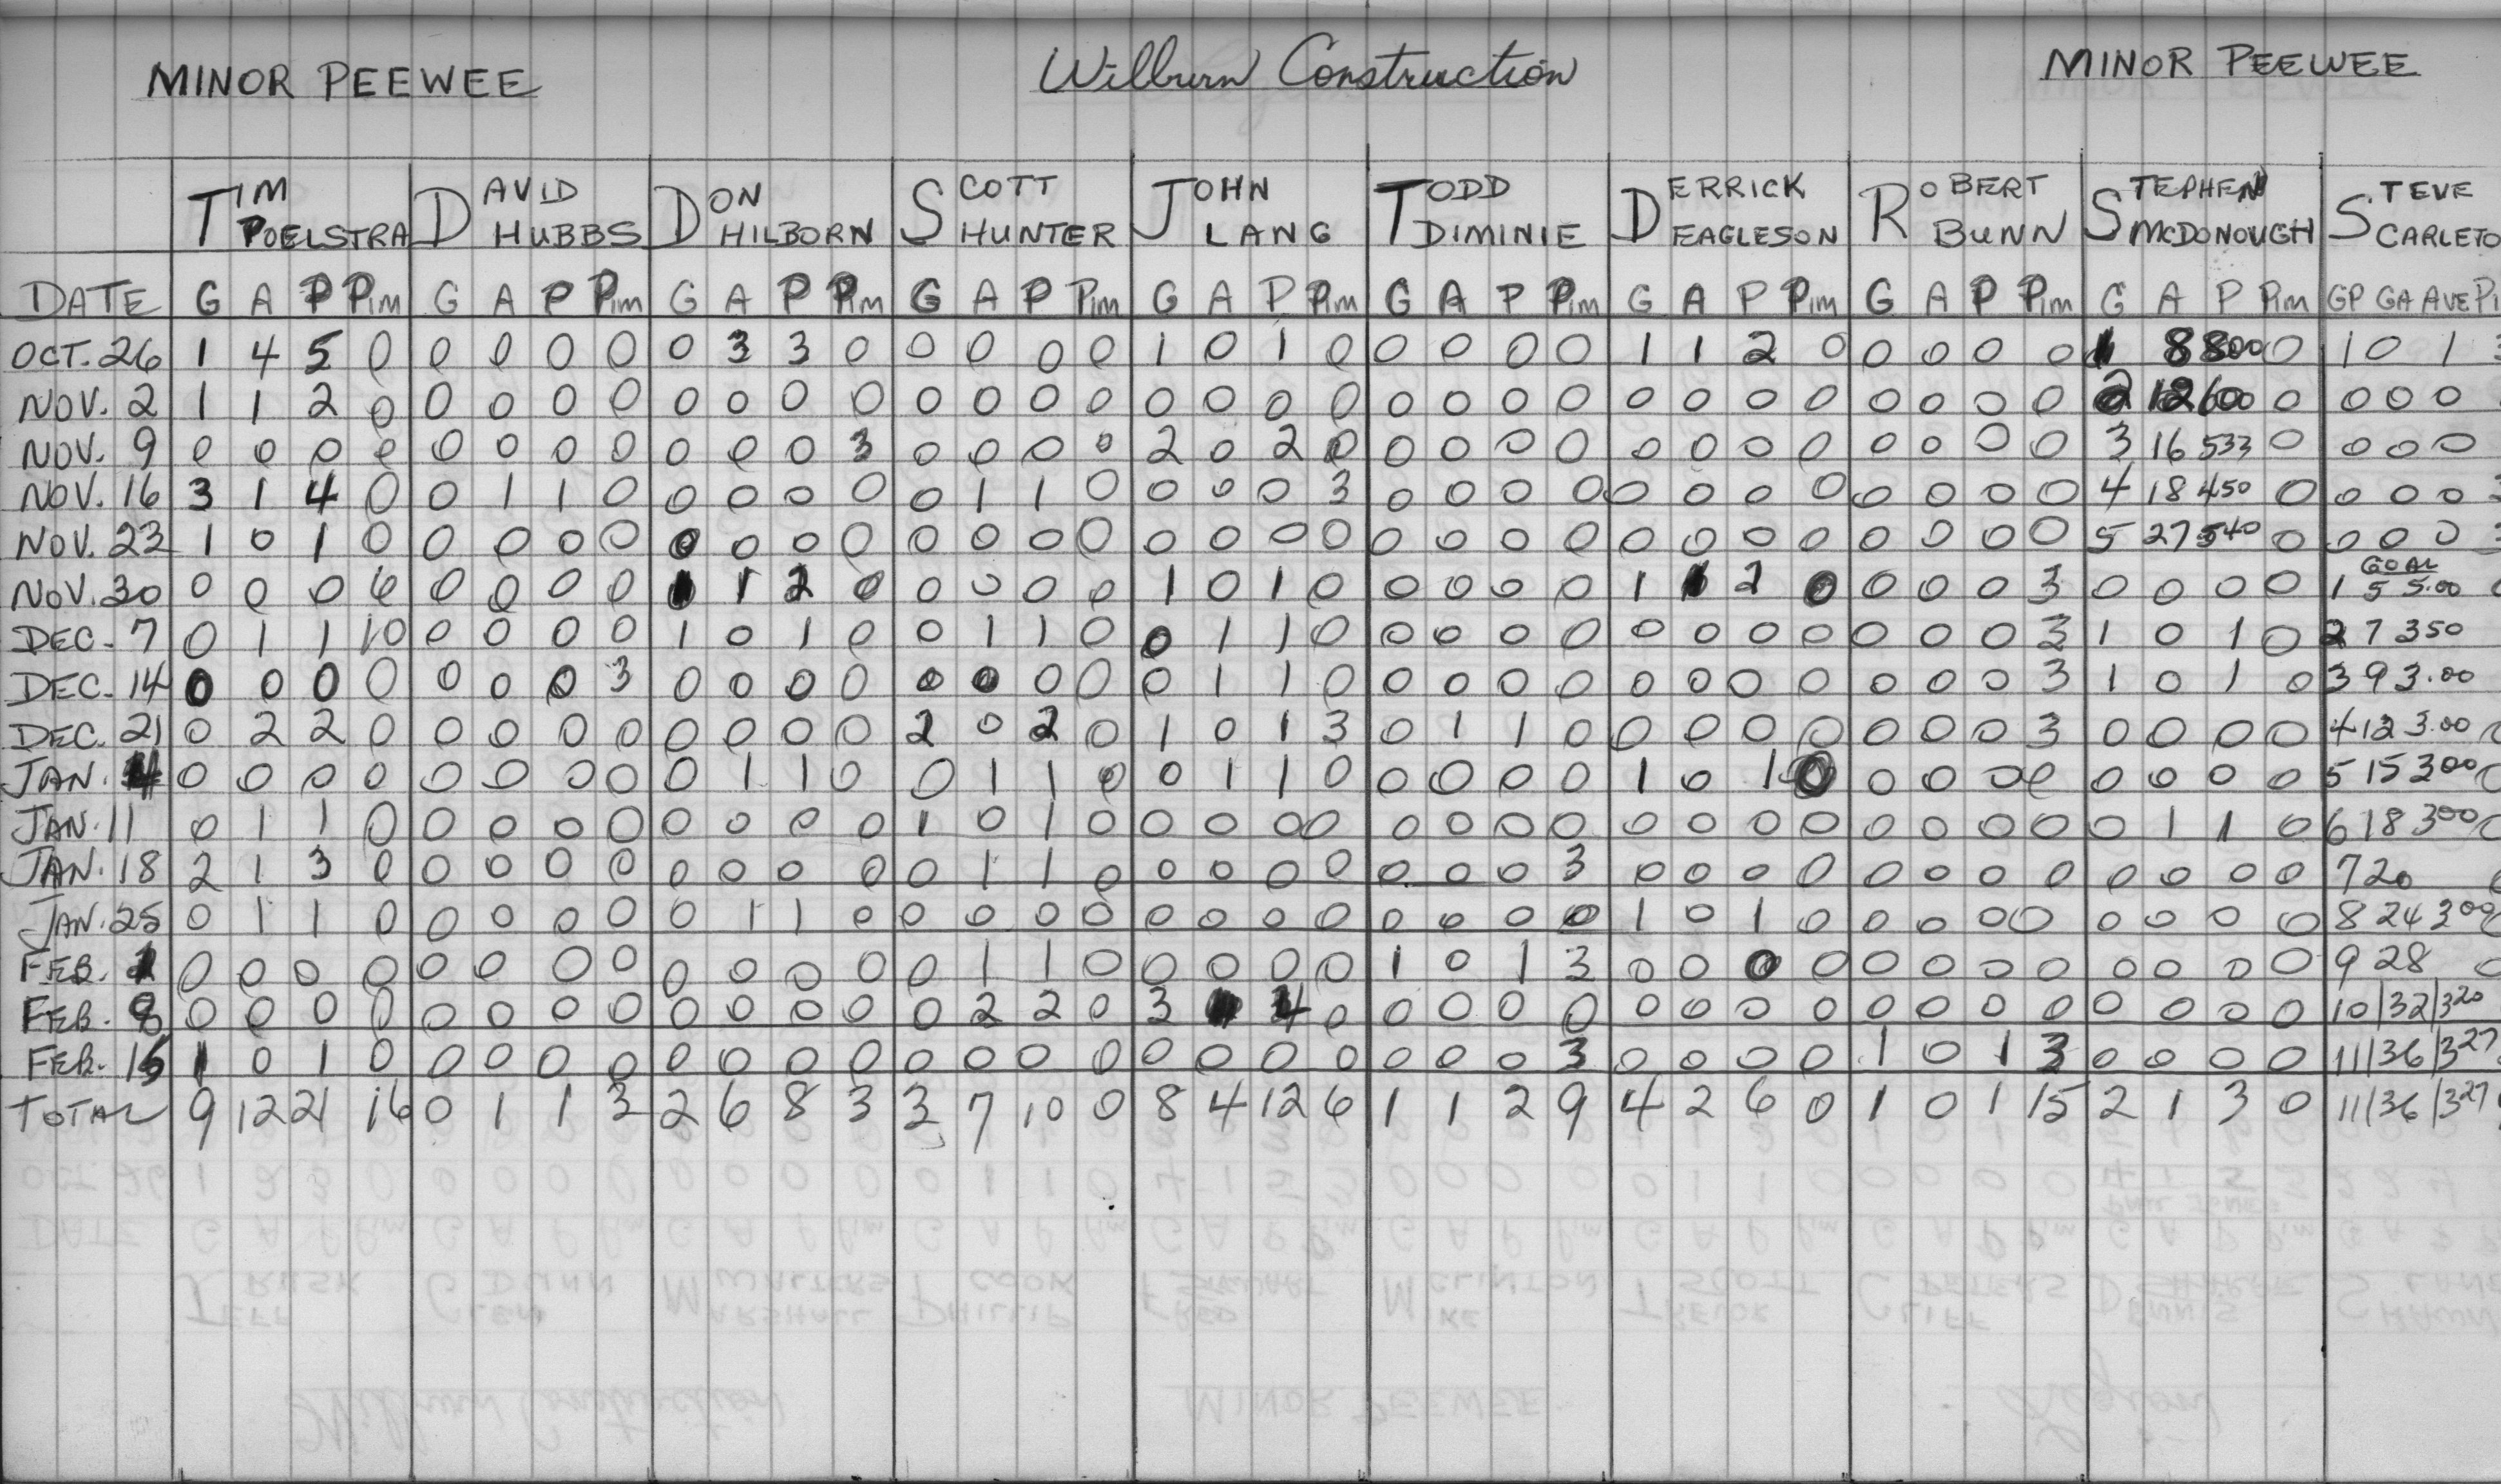 MINOR PEEWEE Wilburn Construction MINOR PEEWEE
TIM POELSTRA DAVID HUBBS DON HILBORN SCOTT HUNTER JOHN LANG TODD DIMINIE DERRICK EAGLESON ROBERT BUNN STEPHEN MCDONOUGH STEVE SCARLETO
DATE G A P Pim G A P Pim G A P Pim G A P Pim G A P Pim G A P Pim G A P Pim G A P Pim G A P Pim GP GA AVE Pi
OCT. 26 1 4 5 0 0 0 0 0 0 3 3 0 0 0 0 0 1 0 1 0 0 0 0 0 1 1 2 0 0 0 0 0 1 8 800 0 1 0 1 3
NOV. 2 1 1 2 0 0 0 0 0 0 0 0 0 0 0 0 0 0 0 0 0 0 0 0 0 0 0 0 0 0 0 0 0 2 12 600 0 0 0 0
NOV. 9 0 0 0 0 0 0 0 0 0 0 0 3 0 0 0 0 2 0 2 0 0 0 0 0 0 0 0 0 0 0 0 0 3 16 533 0 0 0 0
NOV. 16 3 1 4 0 0 1 1 0 0 0 0 0 0 1 1 0 0 0 0 3 0 0 0 0 0 0 0 0 0 0 0 0 4 18 450 0 0 0 0 3
NOV. 23 1 0 1 0 0 0 0 0 0 0 0 0 0 0 0 0 0 0 0 0 0 0 0 0 0 0 0 0 0 0 0 0 5 27 540 0 0 0 0 3
GOAL
NOV. 30 0 0 0 6 0 0 0 0 1 1 2 0 0 0 0 0 1 0 1 0 0 0 0 0 1 1 2 0 0 0 0 3 0 0 0 0 1 5 5.00 0
DEC. 7 0 1 1 10 0 0 0 0 1 0 1 0 0 1 1 0 0 1 1 0 0 0 0 0 0 0 0 0 0 0 0 3 1 0 1 0 2 7 350
DEC. 14 0 0 0 0 0 0 0 3 0 0 0 0 0 0 0 0 0 1 1 0 0 0 0 0 0 0 0 0 0 0 0 3 1 0 1 0 3 9 3.00
DEC. 21 0 2 2 0 0 0 0 0 0 0 0 0 2 0 2 0 1 0 1 3 0 1 1 0 0 0 0 0 0 0 0 3 0 0 0 0 4 12 3.00 0
JAN. 4 0 0 0 0 0 0 0 0 0 1 1 0 0 1 1 0 0 1 1 0 0 0 0 0 1 0 1 0 0 0 0 0 0 0 0 0 5 15 300 0
JAN. 11 0 1 1 0 0 0 0 0 0 0 0 0 1 0 1 0 0 0 0 0 0 0 0 0 0 0 0 0 0 0 0 0 0 1 1 0 6 18 300 0
JAN. 18 2 1 3 0 0 0 0 0 0 0 0 0 0 1 1 0 0 0 0 0 0 0 0 3 0 0 0 0 0 0 0 0 0 0 0 0 7 20 0
JAN. 25 0 1 1 0 0 0 0 0 0 1 1 0 0 0 0 0 0 0 0 0 0 0 0 0 1 0 1 0 0 0 0 0 0 0 0 0 8 24 300 0
FEB. 1 0 0 0 0 0 0 0 0 0 0 0 0 0 1 1 0 0 0 0 0 1 0 1 3 0 0 0 0 0 0 0 0 0 0 0 0 9 28 0
FEB. 8 0 0 0 0 0 0 0 0 0 0 0 0 0 2 2 0 3 1 4 0 0 0 0 0 0 0 0 0 0 0 0 0 0 0 0 0 10/32/320
FEB. 15 1 0 1 0 0 0 0 0 0 0 0 0 0 0 0 0 0 0 0 0 0 0 0 3 0 0 0 0 1 0 1 3 0 0 0 0 11/36/327
TOTAL 9 12 21 16 0 1 1 3 2 6 8 3 3 7 10 0 8 4 12 6 1 1 2 9 4 2 6 0 1 0 1 15 2 1 3 0 11/36/327